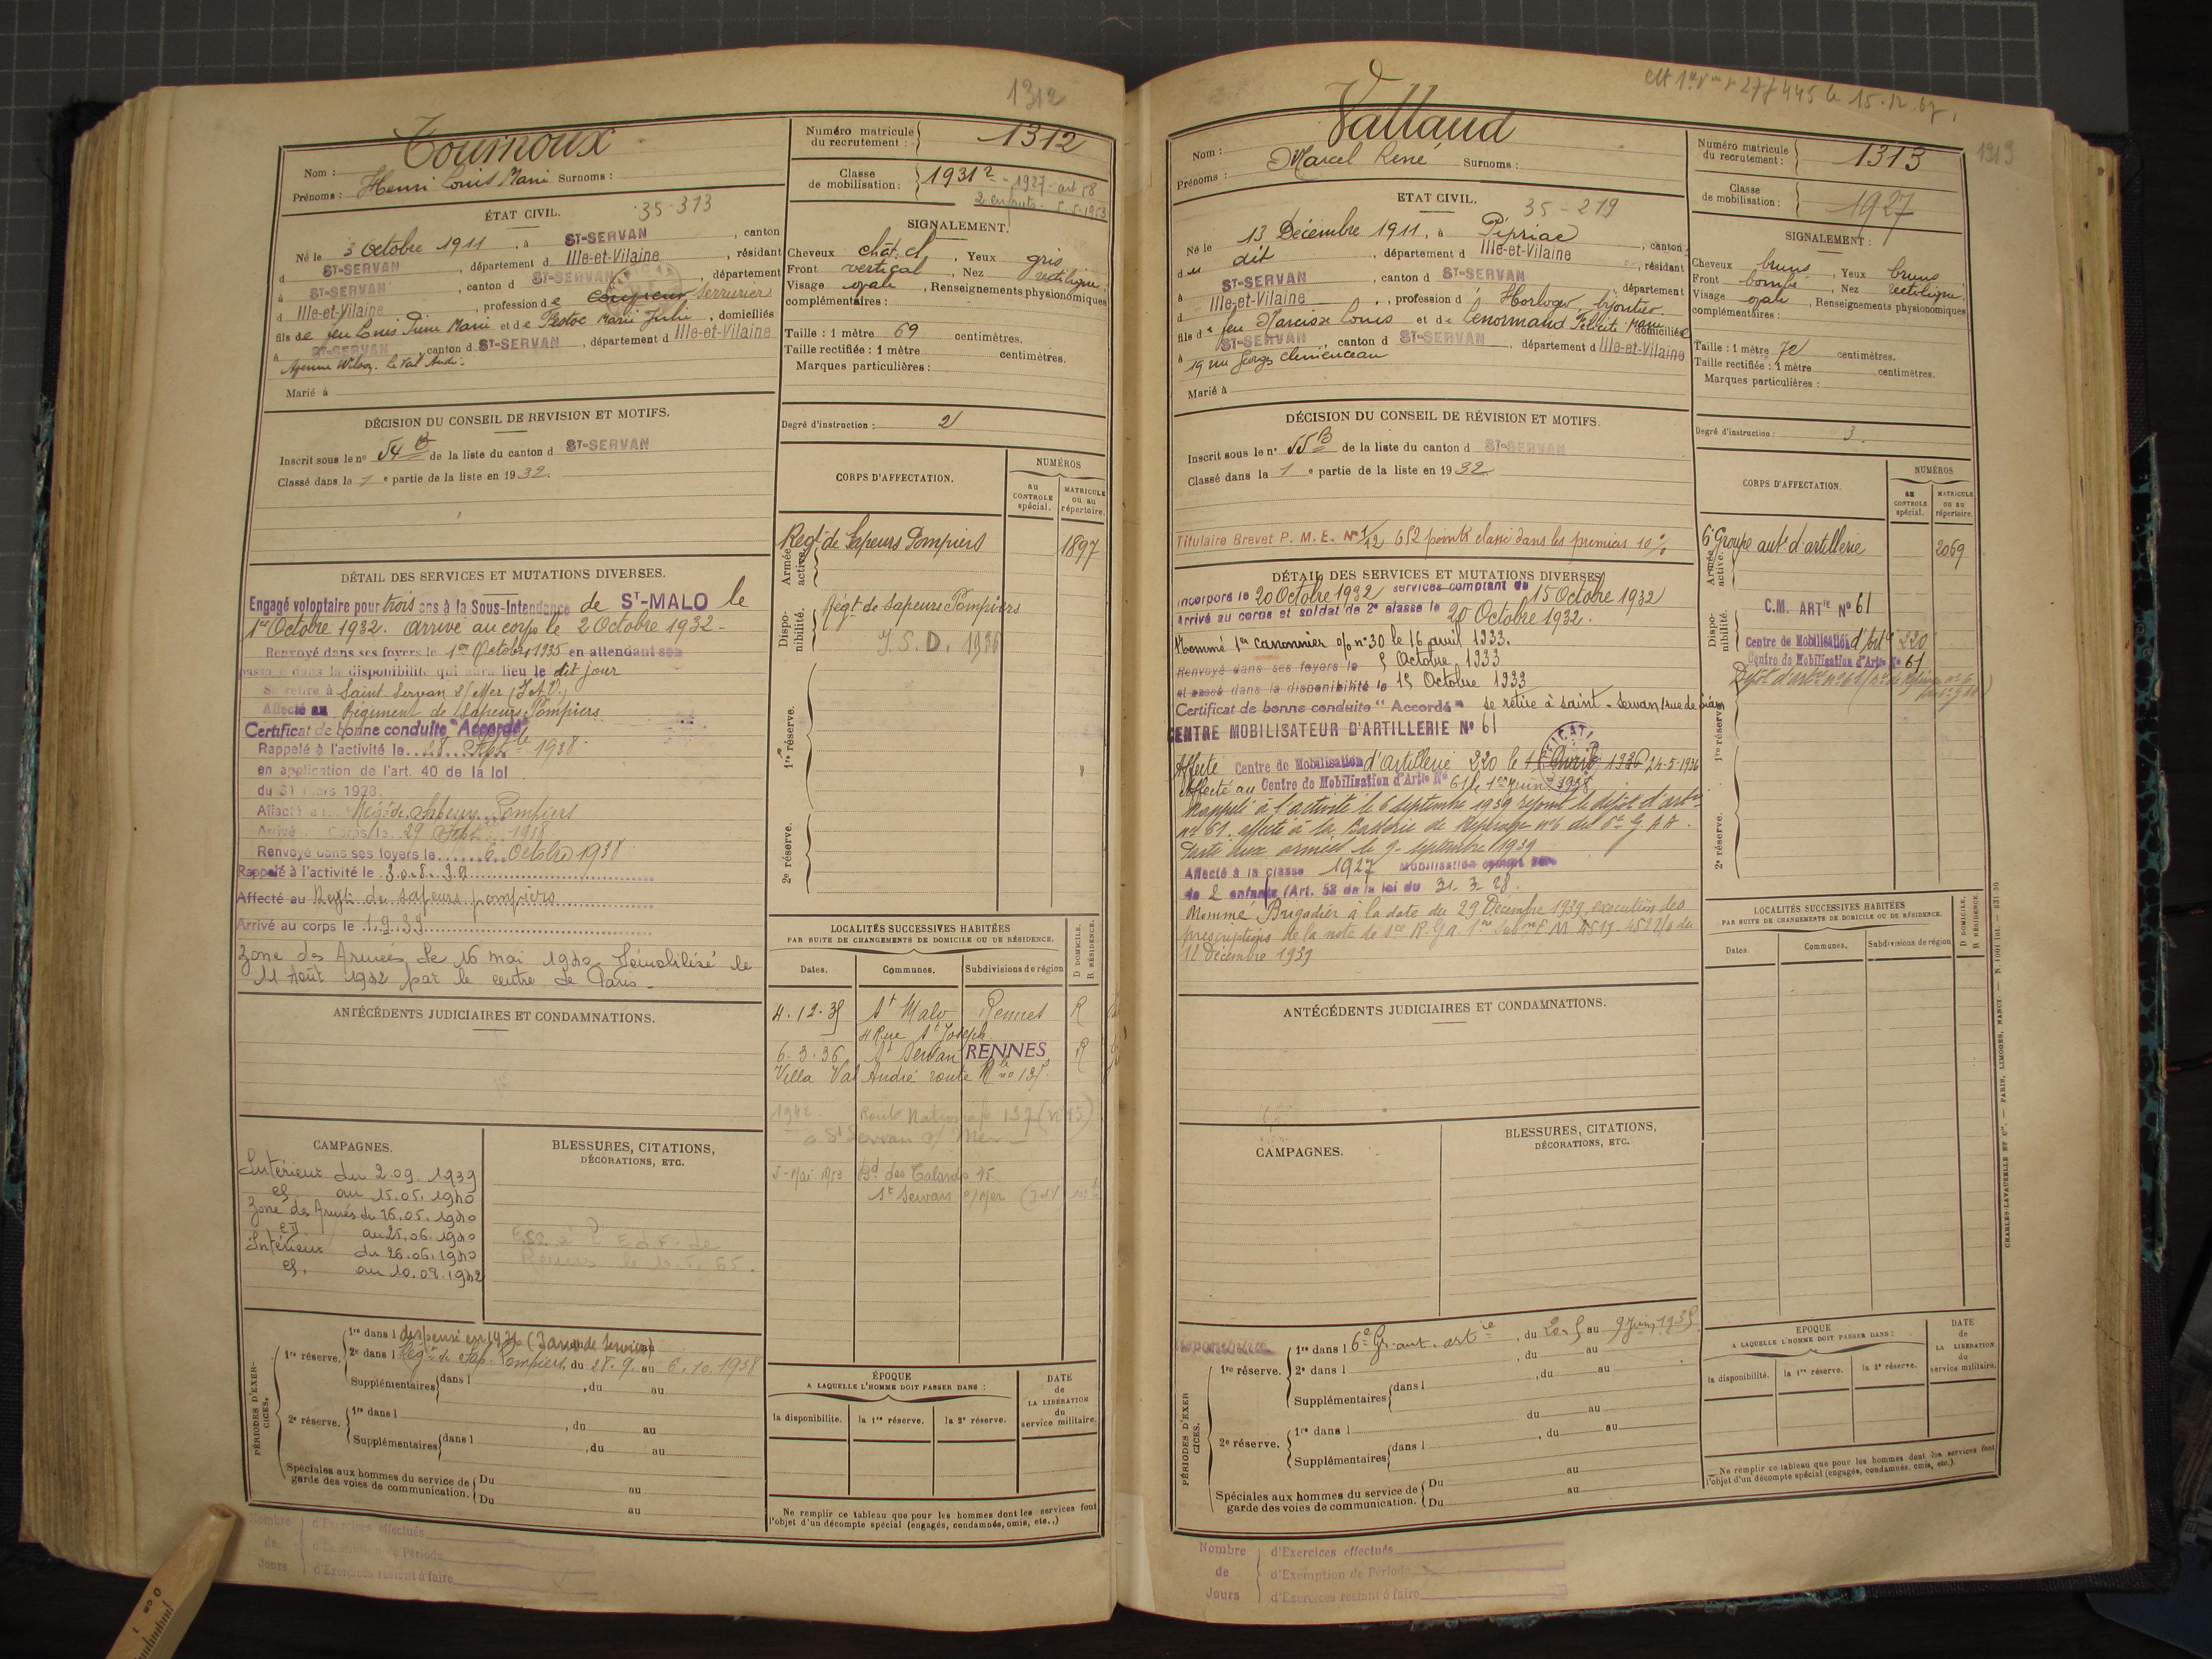 1312
Tournoux
Nom :
Prénoms : Henri Louis Marie Surnoms :
Numéro matricule du recrutement : 1312
Classe de mobilisation : 1931 2 - 1927 - art 58
2 enfants - 5.5.1953
ÉTAT CIVIL. 35-313
Né le 3 Octobre 1911, à ST-SERVAN, canton
d ST-SERVAN, département d Ille-et-Vilaine, résidant
à ST-SERVAN, canton d ST-SERVAN, département
d Ille-et-Vilaine, profession de serrurier
fils de feu Louis Pierre Marie et de Pestoc Marie Julie, domiciliés
à ST-SERVAN, canton d ST-SERVAN, département d Ille-et-Vilaine
Avenue Wilson. Le Val André.
Marié à
SIGNALEMENT.
Cheveux chât. cl, Yeux gris
Front vertical, Nez rectiligne
Visage ovale, Renseignements physionomiques
complémentaires :
Taille : 1 mètre 69 centimètres.
Taille rectifiée : 1 mètre centimètres.
Marques particulières :
Degré d'instruction : 2
DÉCISION DU CONSEIL DE REVISION ET MOTIFS.
Inscrit sous le n° 54 B de la liste du canton d ST-SERVAN
Classé dans la 1e partie de la liste en 1932.
CORPS D'AFFECTATION.
NUMÉROS
au CONTROLE spécial.
MATRICULE ou au répertoire.
Armée active.
Regt de Sapeurs Pompiers 1897
Disponibilité.
Régt de Sapeurs Pompiers
J.S.D. 1936
1re réserve.
2e réserve.
DÉTAIL DES SERVICES ET MUTATIONS DIVERSES.
Engagé volontaire pour trois ans à la Sous-Intendance de ST-MALO le
1er Octobre 1932. arrivé au corps le 2 Octobre 1932 -
Renvoyé dans ses foyers le 1er Octobre 1935 en attendant son
passage dans la disponibilité qui aura lieu le dit jour
Se retire à Saint Servan s/Mer (I & V)
Affecté au Régiment de Sapeurs Pompiers
Certificat de bonne conduite "Accordé"
Rappelé à l'activité le 28 Septbre 1938
en application de l'art. 40 de la loi
du 31 mars 1928.
Affecté au Régt de Sapeurs Pompiers
Arrivé Corps le 29 Sept. 1938
Renvoyé dans ses foyers le 6 Octobre 1938
Rappelé à l'activité le 30.8.39
Affecté au Regt de sapeurs pompiers
Arrivé au corps le 1.9.39
Zone des Armées le 16 mai 1940 Démobilisé le
11 Août 1942 par le centre de Paris -
ANTÉCÉDENTS JUDICIAIRES ET CONDAMNATIONS.
LOCALITÉS SUCCESSIVES HABITÉES
PAR SUITE DE CHANGEMENTS DE DOMICILE OU DE RÉSIDENCE.
Dates. Communes. Subdivisions de région D DOMICILE. R RÉSIDENCE
4.12.35 St Malo Rennes R
4 Rue St Joseph
6.3.36 St Servan RENNES R
Villa Val André route Nle no 137.
1942 Route Nationale 137 (n° 45)
à St Servan s/ Mer
5-Mai 1953 Bd des Talards 35
St Servan s/Mer (I&V)
CAMPAGNES.
Intérieur du 2.09.1939
CS au 15.05.1940
Zone des Armées du 16.05.1940
CD au 25.06.1940
Intérieur du 26.06.1940
CS. au 10.08.1942
BLESSURES, CITATIONS,
DÉCORATIONS, ETC.
PÉRIODES D'EXERCICES.
1re réserve. 1re dans l dispensé en 1936 (3 ans de service)
2e dans l Régt de Sap. Pompiers, du 28.9. au 6.10.1938
Supplémentaires dans l , du au
2e réserve. 1re dans l , du au
Supplémentaires dans l , du au
Spéciales aux hommes du service de garde des voies de communication. Du au
Du au
ÉPOQUE
A LAQUELLE L'HOMME DOIT PASSER DANS :
la disponibilite. la 1re réserve. la 2e réserve.
DATE de LA LIBÉRATION du service militaire.
Ne remplir ce tableau que pour les hommes dont les services font
l'objet d'un décompte spécial (engagés, condamnés, omis, etc.,)
Nombre de Jours
d'Exercices effectués
d'Exemption de Période
d'Exercices restant à faire
277445 le 15.12.67
1313
Vallaud
Nom :
Prénoms : Marcel René Surnoms :
Numéro matricule du recrutement : 1313
Classe de mobilisation : 1927
ETAT CIVIL. 35-219
Né le 13 Décembre 1911, à Pipriac, canton
d u dit, département d Ille-et-Vilaine, résidant
à ST-SERVAN, canton d ST-SERVAN, département
d Ille-et-Vilaine, profession d' Horloger bijoutier
fils de feu Narcisse Louis et de Lenormand Félicité Marie domiciliés
à ST-SERVAN, canton d ST-SERVAN, département d Ille-et-Vilaine
19 rue Georges Clemenceau
Marié à
SIGNALEMENT :
Cheveux bruns, Yeux bruns
Front bombé, Nez rectiligne.
Visage ovale, Renseignements physionomiques
complémentaires :
Taille : 1 mètre 70 centimètres.
Taille rectifiée : 1 mètre centimètres.
Marques particulières :
Degré d'instruction : 3.
DÉCISION DU CONSEIL DE RÉVISION ET MOTIFS.
Inscrit sous le n° 55 B de la liste du canton d ST-SERVAN
Classé dans la 1e partie de la liste en 1932
Titulaire Brevet P. M. E. N° 1/12 652 points classé dans les premiers 10%
CORPS D'AFFECTATION.
NUMÉROS
au CONTROLE spécial.
MATRICULE ou au répertoire.
Armée active.
6e Groupe aut. d'artillerie 2069
Disponibilité.
C.M. ARTIE N° 61
Centre de Mobilisation d'artie 220
Centre de Mobilisation d'Artie N° 61
Dépôt d'artie n°61
1re réserve.
2e réserve.
DÉTAIL DES SERVICES ET MUTATIONS DIVERSES
Incorporé le 20 Octobre 1932 services comptant du 15 Octobre 1932
Arrivé au corps et soldat de 2e classe le 20 Octobre 1932.
Nommé 1er canonnier o/o n°30 le 16 avril 1933.
Renvoyé dans ses foyers le 5 Octobre 1933
et passé dans la disponibilité le 15 Octobre 1933
Certificat de bonne conduite "Accordé" se retire à saint-Servan, 1 rue de Dinan
CENTRE MOBILISATEUR D'ARTILLERIE N° 61
Affecté Centre de Mobilisation d'artillerie 220 le 24-5-1936
Affecté au Centre de Mobilisation d'Artie N° 61 le 1er juin 1938
Rappelé à l'activité le 6 septembre 1939 rejoint le dépôt d'artie
n° 61. affecté à la Batterie de Repérage n°6 du 6e G A A.
Parti aux armées le 9 septembre 1939
Affecté à la classe 1927 Mobilisation
de 2 enfants (Art. 58 de la loi du 31.3.28.
Nommé Brigadier à la date du 29 Décembre 1939, exécution des
prescriptions de la note de
12 Décembre 1939
ANTÉCÉDENTS JUDICIAIRES ET CONDAMNATIONS.
LOCALITÉS SUCCESSIVES HABITÉES
PAR SUITE DE CHANGEMENTS DE DOMICILE OU DE RÉSIDENCE.
Dates Communes. Subdivisions de région D DOMICILE. R RÉSIDENCE
CAMPAGNES.
BLESSURES, CITATIONS,
DÉCORATIONS, ETC.
PÉRIODES D'EXERCICES.
Disponibilité
1re réserve. 1re dans l 6e Gr. aut. artie, du 20-5 au 9 Juin 1935
2e dans l , du au
Supplémentaires dans l , du au
du au
2e réserve. 1re dans l , du au
Supplémentaires dans l
Spéciales aux hommes du service de garde des voies de communication. Du au
Du au
EPOQUE
A LAQUELLE L'HOMME DOIT PASSER DANS :
la disponibilité. la 1re réserve. la 2e réserve.
DATE de LA LIBÉRATION du service militaire.
Ne remplir ce tableau que pour les hommes dont les services font
l'objet d'un décompte spécial (engagés, condamnés, omis, etc.).
CHARLES-LAVAUZELLE ET Cie. — PARIS, LIMOGES, NANCY.
Nombre de Jours
d'Exercices effectués
d'Exemption de Période
d'Exercices restant à faire